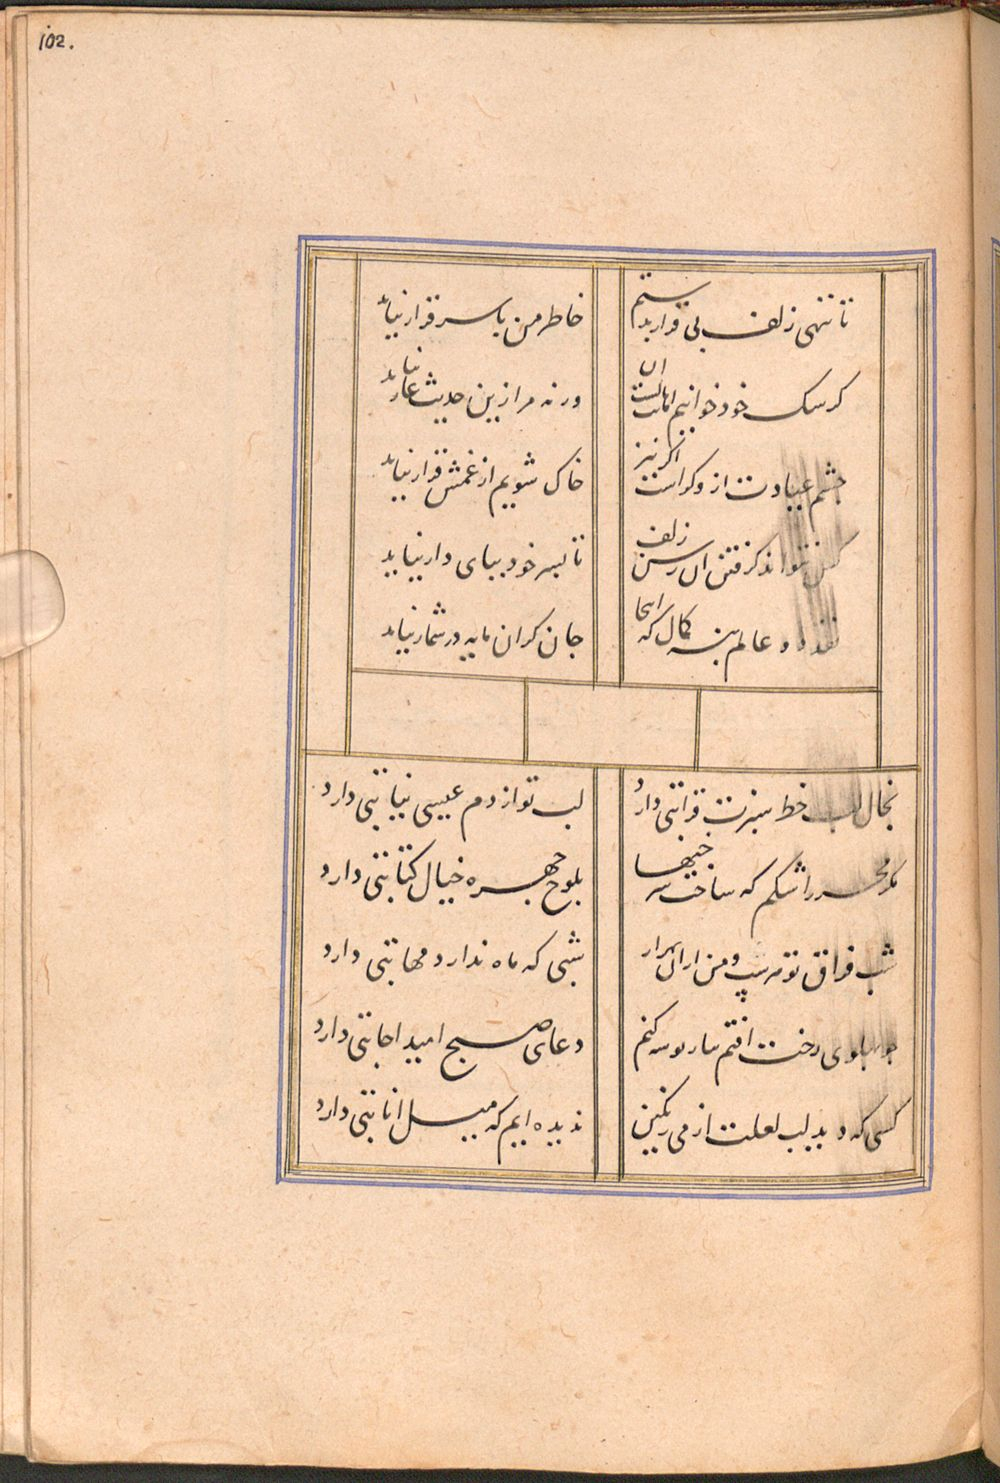 102.
تا ننهی زلف بی قرار بدستم
خاطر من با سر قرار نیاید
کر سک خود خوانیم امانت است ان
ورنه مرا زین حدیث عار نیاید
چشم عیادت از و کراست اکر نیز
خاک شویم از غمش قرار نیاید
کس نتواند کرفتن ان رسن زلف
تا بسر خود بپای دار نیاید
نقد دو عالم بنه کمال که انجا
جان کران مایه در شمار نیاید
بخال لب خط سبزت قرابتی دارد
لب تو از دم عیسی نیابتی دارد
مکر محرر اشکم که ساخت سرخیها
بلوح چهره خیال کتابتی دارد
شب فراق تو میرسید و من از ان
شبی که ماه ندارد مهابتی دارد
رخت افتم کنم
دعای صبح امید اجابتی دارد
کسی که دید لب لعلت از می رنکین
ندیده ایم که میل انابتی دارد